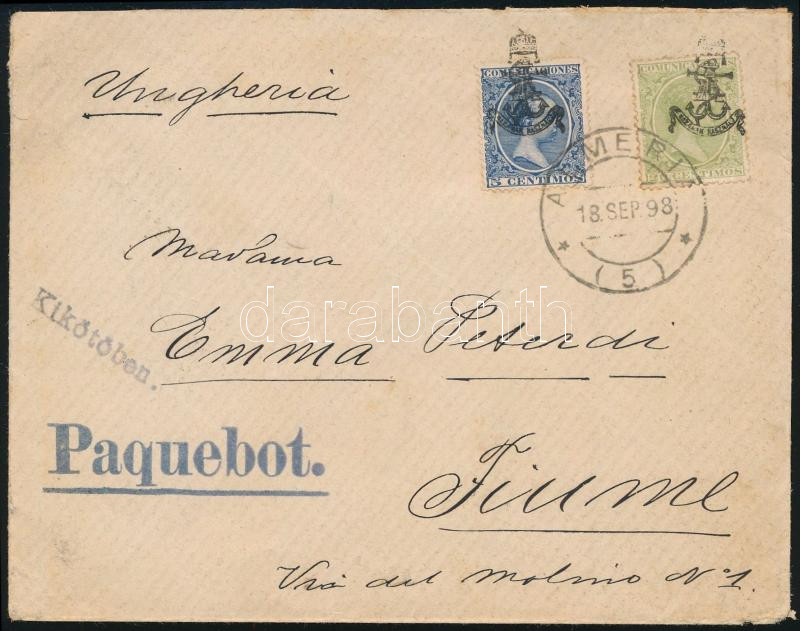 Ungheria
COMUNICACIONES
5 CENTIMOS
COMUNICACIONES
CENTIMOS
18.SEP.98
(5)
Madama
Emma Peterdi
Kikötöben.
darabanth
Paquebot.
Fiume
Via del Molino No 1.